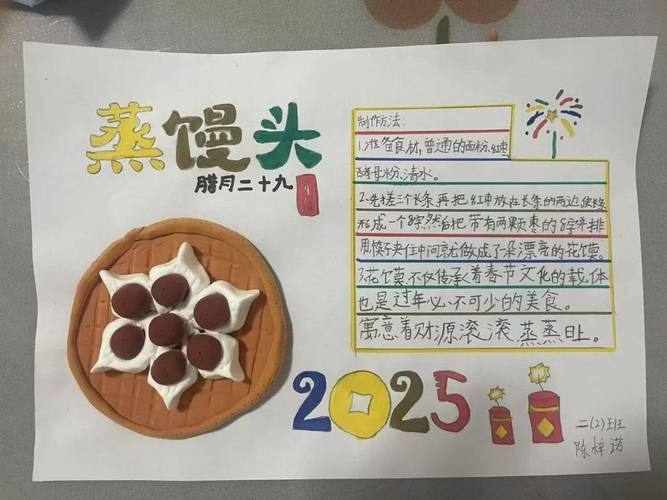 蒸馒头
腊月二十九
制作方法:
1.准备食材,普通的面粉、红枣
酵母粉、清水。
2.先搓三个长条,再把红枣放在长条的两边,使长条
形成一个8字,然后把带有两颗枣的8字并排
用筷子夹住中间就做成了朵漂亮的花馍。
3.花馍不仅传承着春节文化的载体
也是过年必不可少的美食。
寓意着财源滚滚,蒸蒸日上。
2025
二(2)班
陈梓诺